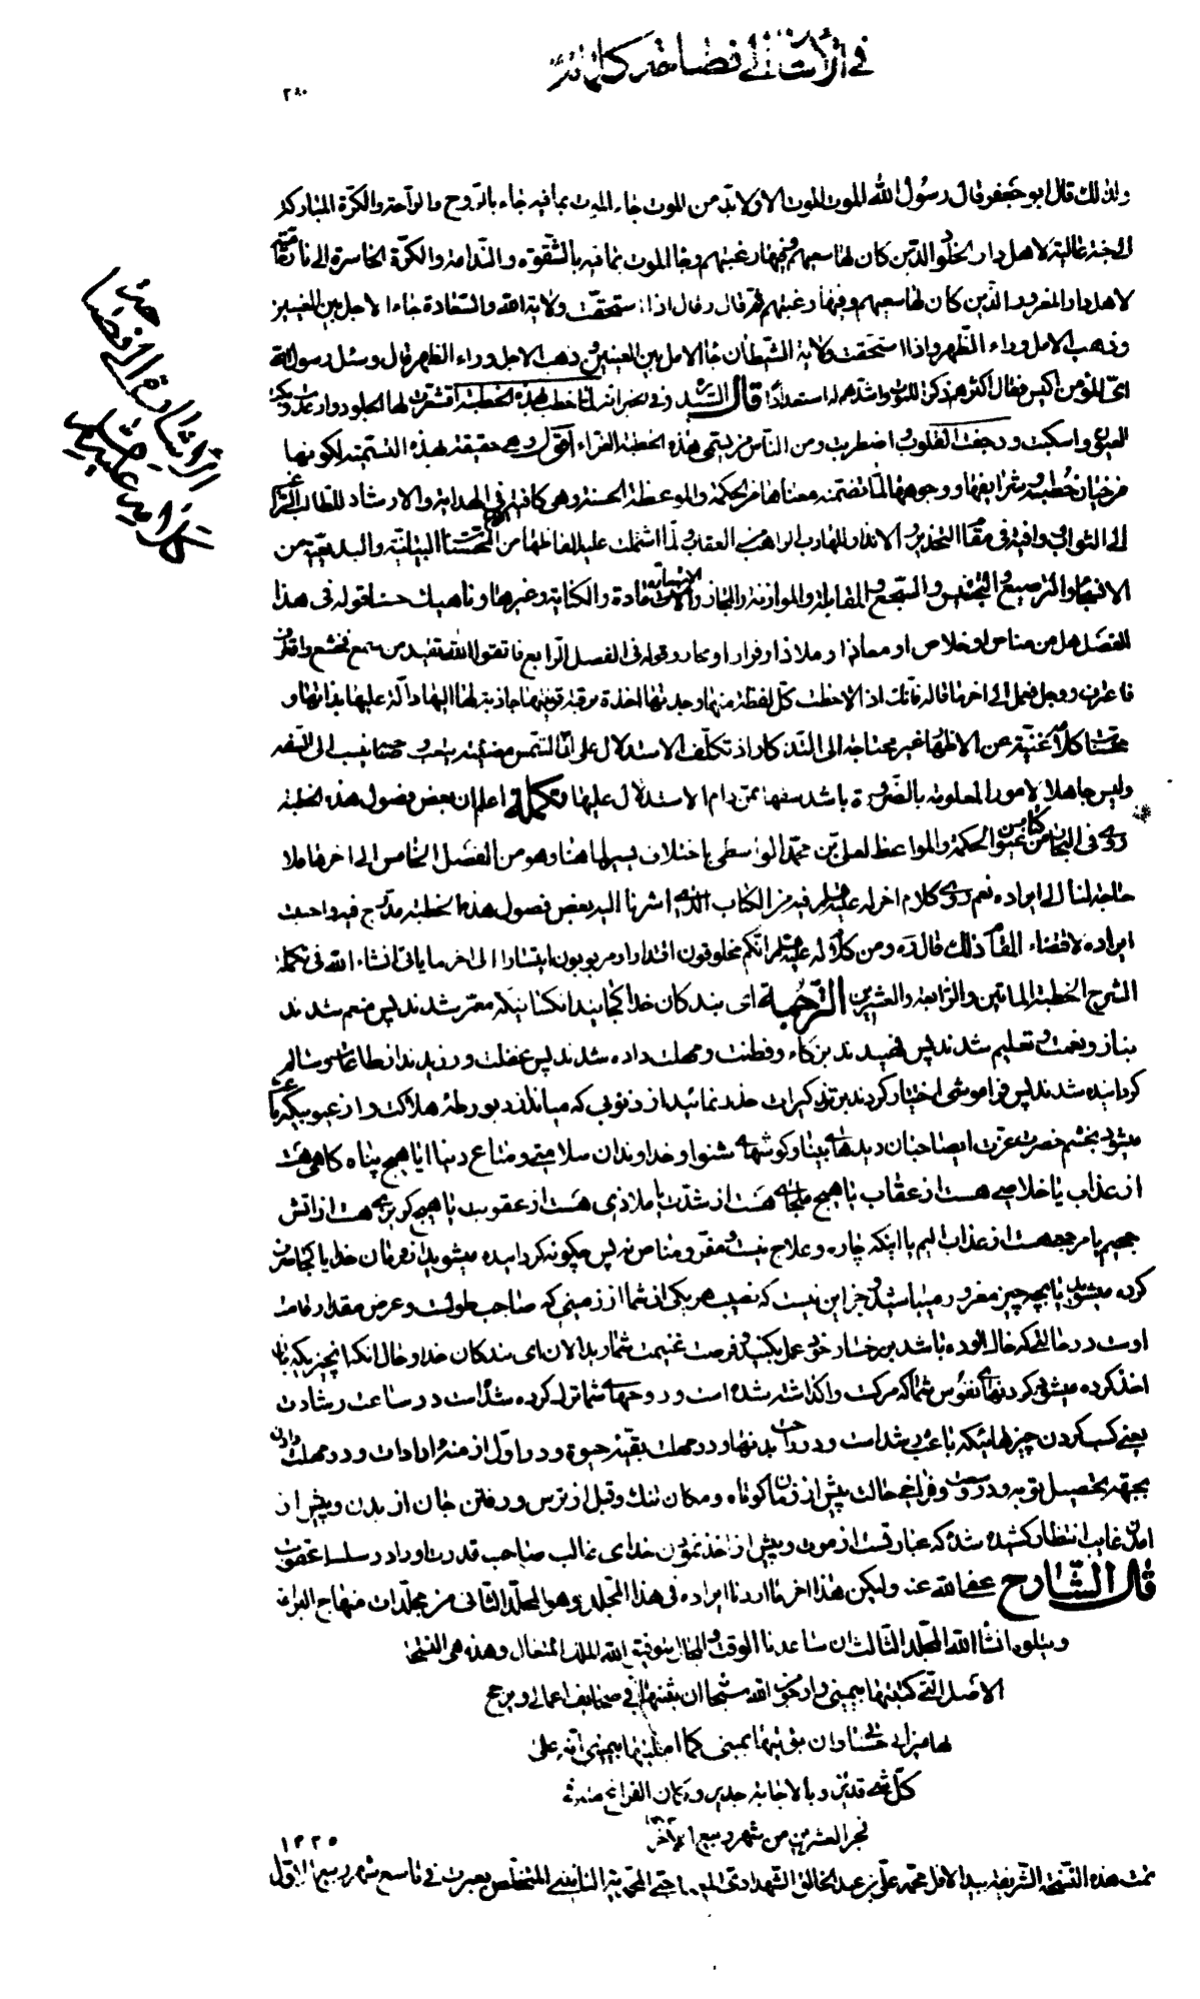 في الأشارة الى فصاحة كلامه
٢٨٠
ولذلك قال ابو جعفر قال رسول الله الموت الموت الا ولا بد من الموت جاء الموت بما فيه جاء بالروح والراحة والكرة المباركة
الى جنة عالية لاهل دار الخلود الذين كان لها سعيهم وفيها رغبتهم وجاء الموت بما فيه بالشقوة والندامة والكرة الخاسرة الى نار حامية
لاهل دار الغرور الذين كان لها سعيهم وفيها رغبتهم ثم قال وقال اذا استحقت ولاية الله والسعادة جاء الاجل بين العينين
وذهب الامل وراء الظهر واذا استحقت ولاية الشيطان جاء الامل بين العينين وذهب الاجل وراء الظهر قال وسئل رسول الله
اى المؤمن اكيس فقال اكثرهم ذكرا للموت واشدهم له استعدادا قال السيد ره وفي الخبر انه لما خطب بهذه الخطبة اقشعرت لها الجلود وارعدت وبكت
العيون واسكبت ورجفت القلوب واضطربت ومن الناس من يسمى هذه الخطبة الغراء اقول وهي حقيقة بهذه التسمية لكونها
من خيار خطبه وشرايفها ووجوهها لما تضمنه معناها من الحكمة والموعظة الحسنة وهى كافية في الهداية والارشاد للطالب الراغب
الى الثواب وافية في مقام التحذير والانذار للهارب الراهب من العقاب لما اشتملت عليه الفاظها من المحسنات البيانية والبديعية من
الانسجام والترصيع والتجنيس والسجع والمقابلة والموازنة والمجاز والاستعارة والكناية وغيرها وناهيك حسنا قوله في هذا
الفصل هل من مناص او خلاص او معاذ او ملاذ او فرار او محار وقوله في الفصل الرابع فاتقوا الله تقية من سمع فخشع واقترف
فاعترف ووجل فعمل الى اخر ما قاله فانك اذا لاحظت كل لفظة منها وجدتها اخذة برقبة قرينتها جاذبة لها اليها دالة عليها بذاتها و
محسنات كلامه غنية عن الاظهار غير محتاجة الى التذكار اذ تكلف الاستدلال على ان الشمس مضيئة يتعب وصاحبه ينسب الى السفه
وليس جاهل الامور المعلومة بالضرورة باشد سفها ممن رام الاستدلال عليها تكملة اعلم ان بعض فصول هذه الخطبة
روى في البحار من كتاب عيون الحكمة والمواعظ لعلى بن محمد الواسطى باختلاف يسير لما هنا وهو من الفصل الخامس الى اخرها فلا
حاجة لنا الى ايراده نعم روى كلام اخر له عليه السلام فيه من الكتاب الذى اشرنا اليه بعض فصول هذه الخطبة مدرج فيه واحببت
ايراده لاقتضاء المقام ذلك قال ره ومن كلام له عليه السلام انكم مخلوقون اقتدارا ومربوبون اقتسارا الى اخر ما ياتي انشاء الله في تكملة
الشرح الخطبة الماتين والرابعة والعشرين الترجمة اى بندگان خدا كجايند انكسانيكه معمر شدند پس منعم شدند
بناز ونعمت وتعليم شدند پس فهميدند بذكاء وفطنت ومهلت داده شدند پس غفلت ورزيدند از طاعات وسالم
گردانيده شدند پس فراموشى اختيار كردند بر تذكيرات حذر نمائيد از ذنوبى كه مياندازد بورطۀ هلاكت واز عيوبيكه باعث
ميشود بخشم حضرت عزت ايصاحبان ديدهاى بينا وگوشهاى شنوا وخداوندان سلامتى ومتاع دنيا ايا هيچ پناه گاهى هست
از عذاب يا خلاصى هست از عقاب يا هيچ ملجائى هست از شدت يا ملاذى هست از عقوبت يا هيچ گريزى هست از اتش
جحيم يا مرجعى هست از عذاب اليم يا اينكه چاره وعلاج نيست ومفر ومناص نه پس چگونه گردانيده ميشويد از فرمان خدا يا بكجا صرف
كرده ميشويد يا بچه چيز مغرور ميباشيد وجز اين نيست كه نصيب هر يكى از شما از زمينى كه صاحب طولست وعرض مقدار قامت
اوست در حالتى كه خاك الوده باشد بر رخسار خود عمل بكنيد وفرصت غنيمت شماريد الان اى بندگان خدا وحال انكه انچيزيكه بان
اخذ كرده ميشود گردنهاى نفوس شما كه مرگست واگذاشته شده است وروحهاى شما ترك كرده شده است در ساعت رشادت
يعنى كسب كردن چيزهائيكه باعث رشد است ودر راحت بدنها ودر مهلت بقيۀ حيوة ودر اول ازمنۀ ارادات ودر مهلت دادن
بجهة تحصيل توبه ودر وسعت وفراخى حالت پيش از زمان كوتاه ومكان تنگ وقبل از ترس ورفتن جان از بدن وپيش از
امدن غايب انتظار كشيده شده كه عبارتست از موت وپيش از اخذ نمودن خداى غالب صاحب قدرت او را در سلسلۀ عقوبت
قال الشارح عفا الله عنه وليكن هذا اخر ما اردنا ايراده في هذا المجلد وهو المجلد الثاني من مجلدات منهاج البراعة
ويتلوه انشاء الله المجلد الثالث ان ساعدنا الوقت والمجال بتوفيق الله الملك المتعال وهذه هى النسخة
الاصل التى كتبتها بيمينى وارجو من الله سبحانه ان يثبتها في صحايف اعمالى ويرجح
بها ميزان حسناتى وان يؤتينها بيمينى كما امليتها بيمينى انه على
كل شىء قدير وبالاجابة جدير وكان الفراغ منه
فجر العشرين من شهر ربيع الآخر
١٣٢٥
تمت هذه النسخة الشريفة بيد الاقل محمد على بن عبد الخالق في تاسع شهر ربيع الاول
في الاشارة الى فصاحة
كلامه عليه السلام